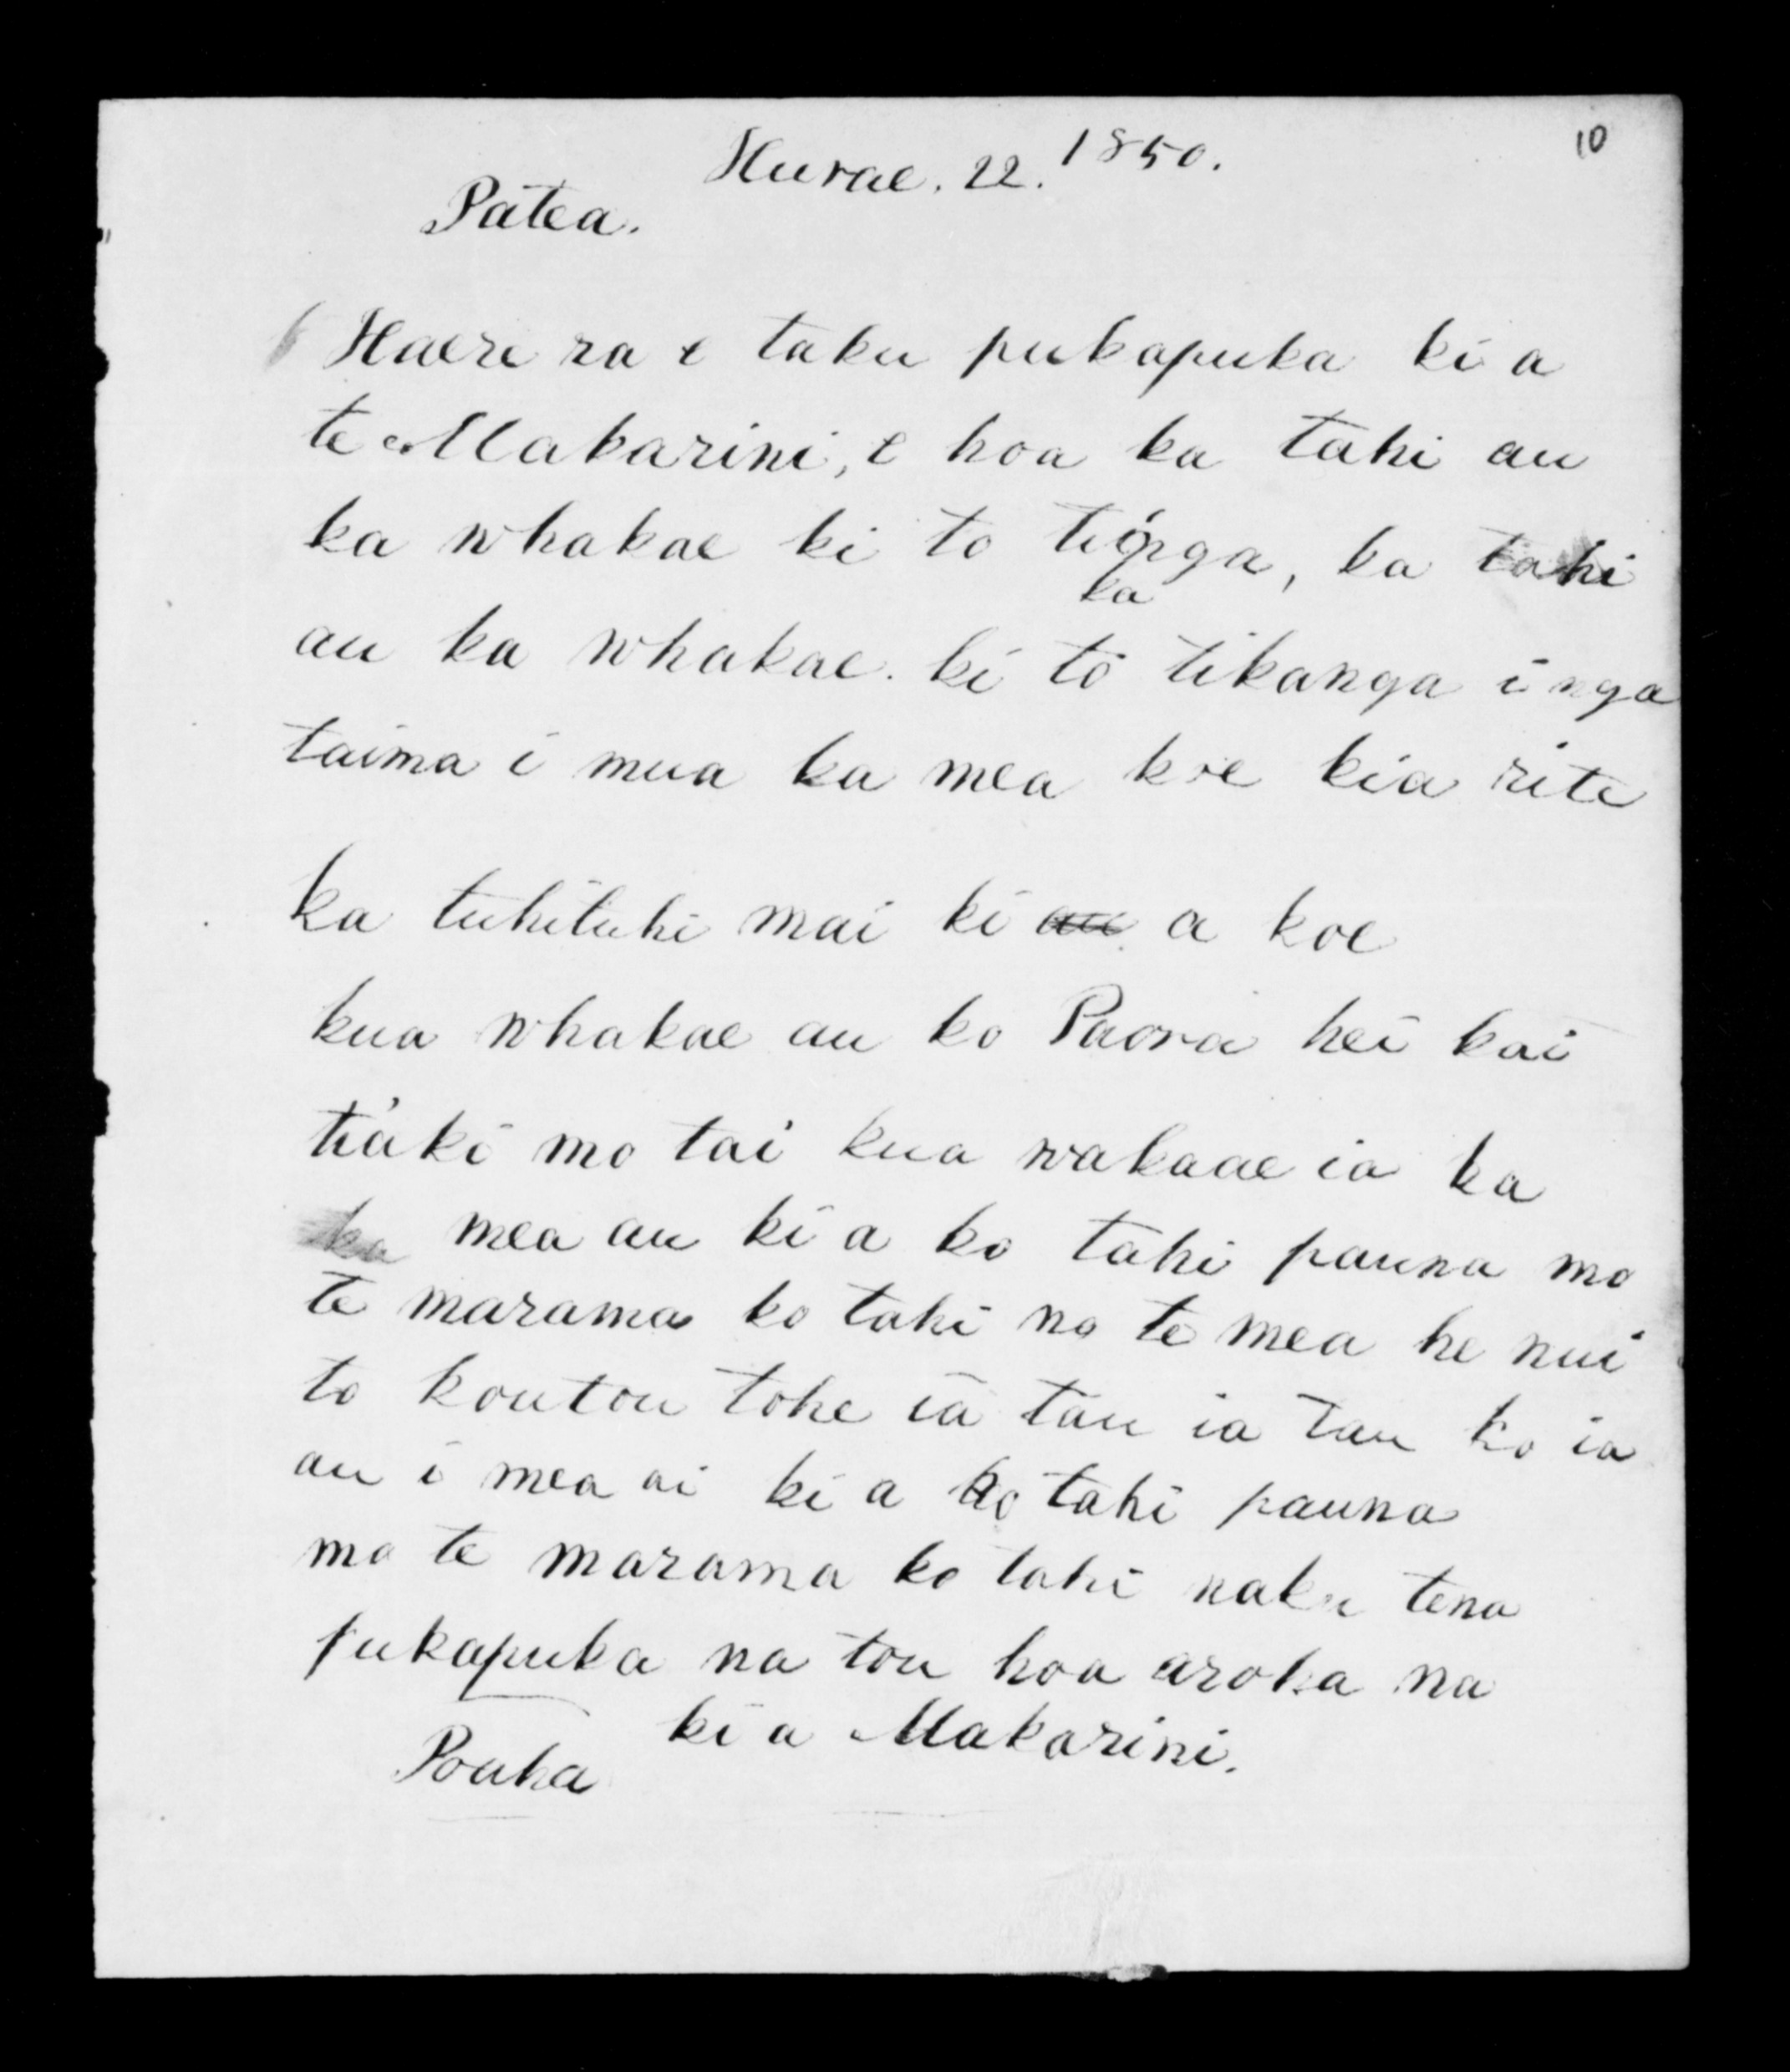 10
Hurae. 22. 1850.
Patea.
Haere ra e taku pukapuka ki a
te Makarini, e hoa ka tahi au
ka whakae ki to tinga, ka tahi
ka
au ka whakae. ki to tikanga i nga
taima i mua ka mea koe kia rite
ka tuhituhi mai ki au a koe
kua whakae au ko Paora hei kai
tiaki mo tai kua wakaae ia ka
ka mea au ki a ko tahi pauna mo
te marama ko tahi no te mea he nui
to koutou tohe ia tau ia tau ko ia
au i mea ai ki a ko tahi pauna
mo te marama ko tahi naku tena
pukapuka na tou hoa aroha na
ki a Makarini.
Pouha